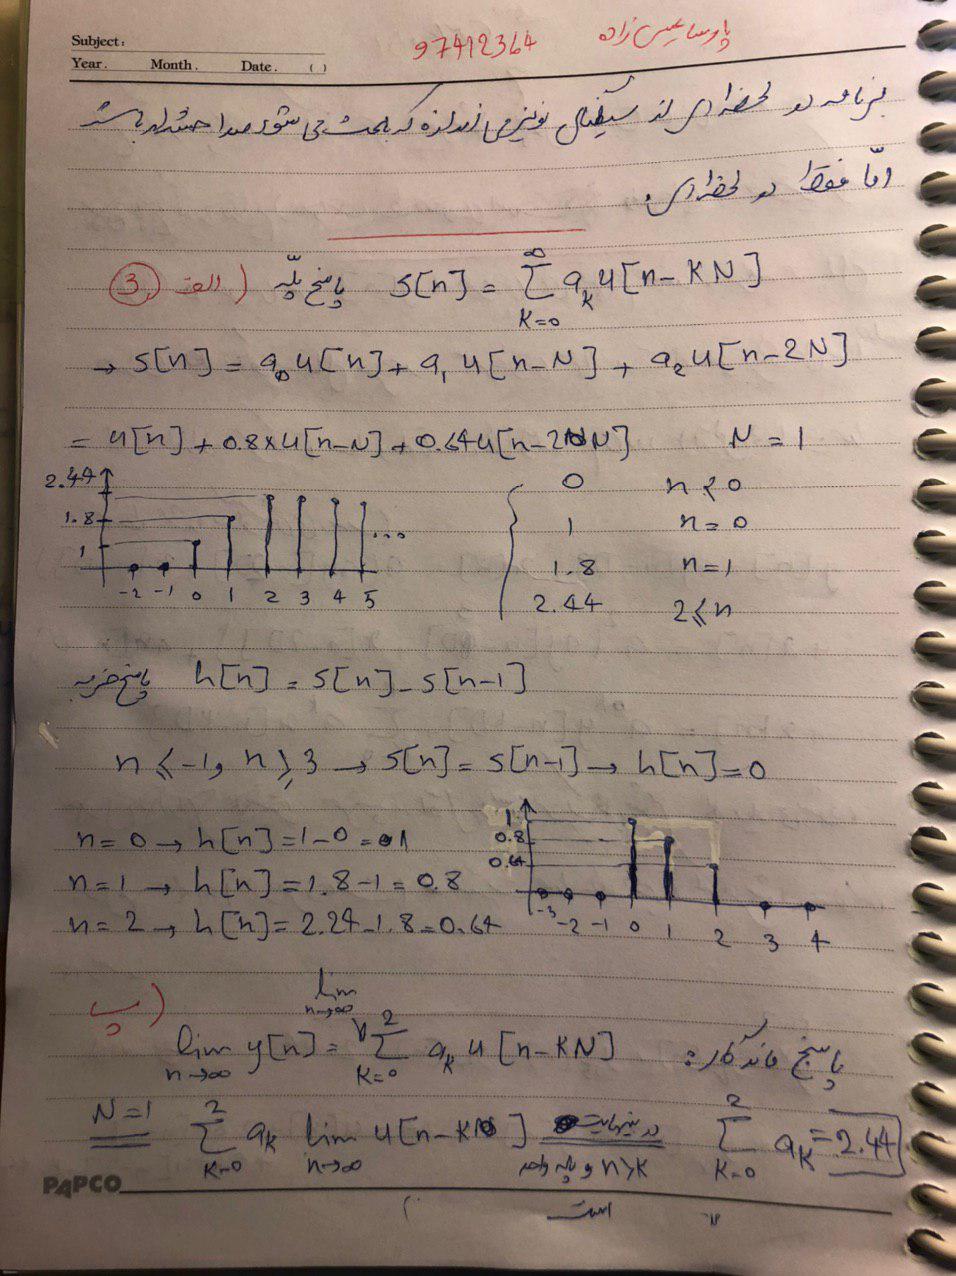 Subject:
Year. Month. Date. ( )
97412364 پارسا عیسی زاده
برنامه در لحظه ای از سیگنال نویز می اندازد که باعث می شود صدا خشدار باشد
امّا فقط در لحظه ای.
3) الف) پاسخ پلّه s[n] = ∑_{K=0}^{∞} a_k u[n-KN]
→ s[n] = a_0 u[n] + a_1 u[n-N] + a_2 u[n-2N]
= u[n] + 0.8×u[n-N] + 0.64u[n-2N] N = 1
2.44
1.8
1
-2 -1 0 1 2 3 4 5 ...
0 n<0
1 n=0
1.8 n=1
2.44 2≤n
پاسخ ضربه h[n] = s[n] - s[n-1]
n≤-1, n≥3 → s[n] = s[n-1] → h[n]=0
n=0 → h[n]=1-0=1
n=1 → h[n]=1.8-1=0.8
n=2 → h[n]=2.24-1.8=0.64
1
0.8
0.64
-3 -2 -1 0 1 2 3 4
ب)
پاسخ ماندگار: lim_{n→∞} y[n] = lim_{n→∞} ∑_{K=0}^{2} a_k u[n-KN]
N=1 ∑_{K=0}^{2} a_k lim_{n→∞} u[n-K] در بینهایت n>K و پله واحد ∑_{K=0}^{2} a_k = 2.44
است
PAPCO